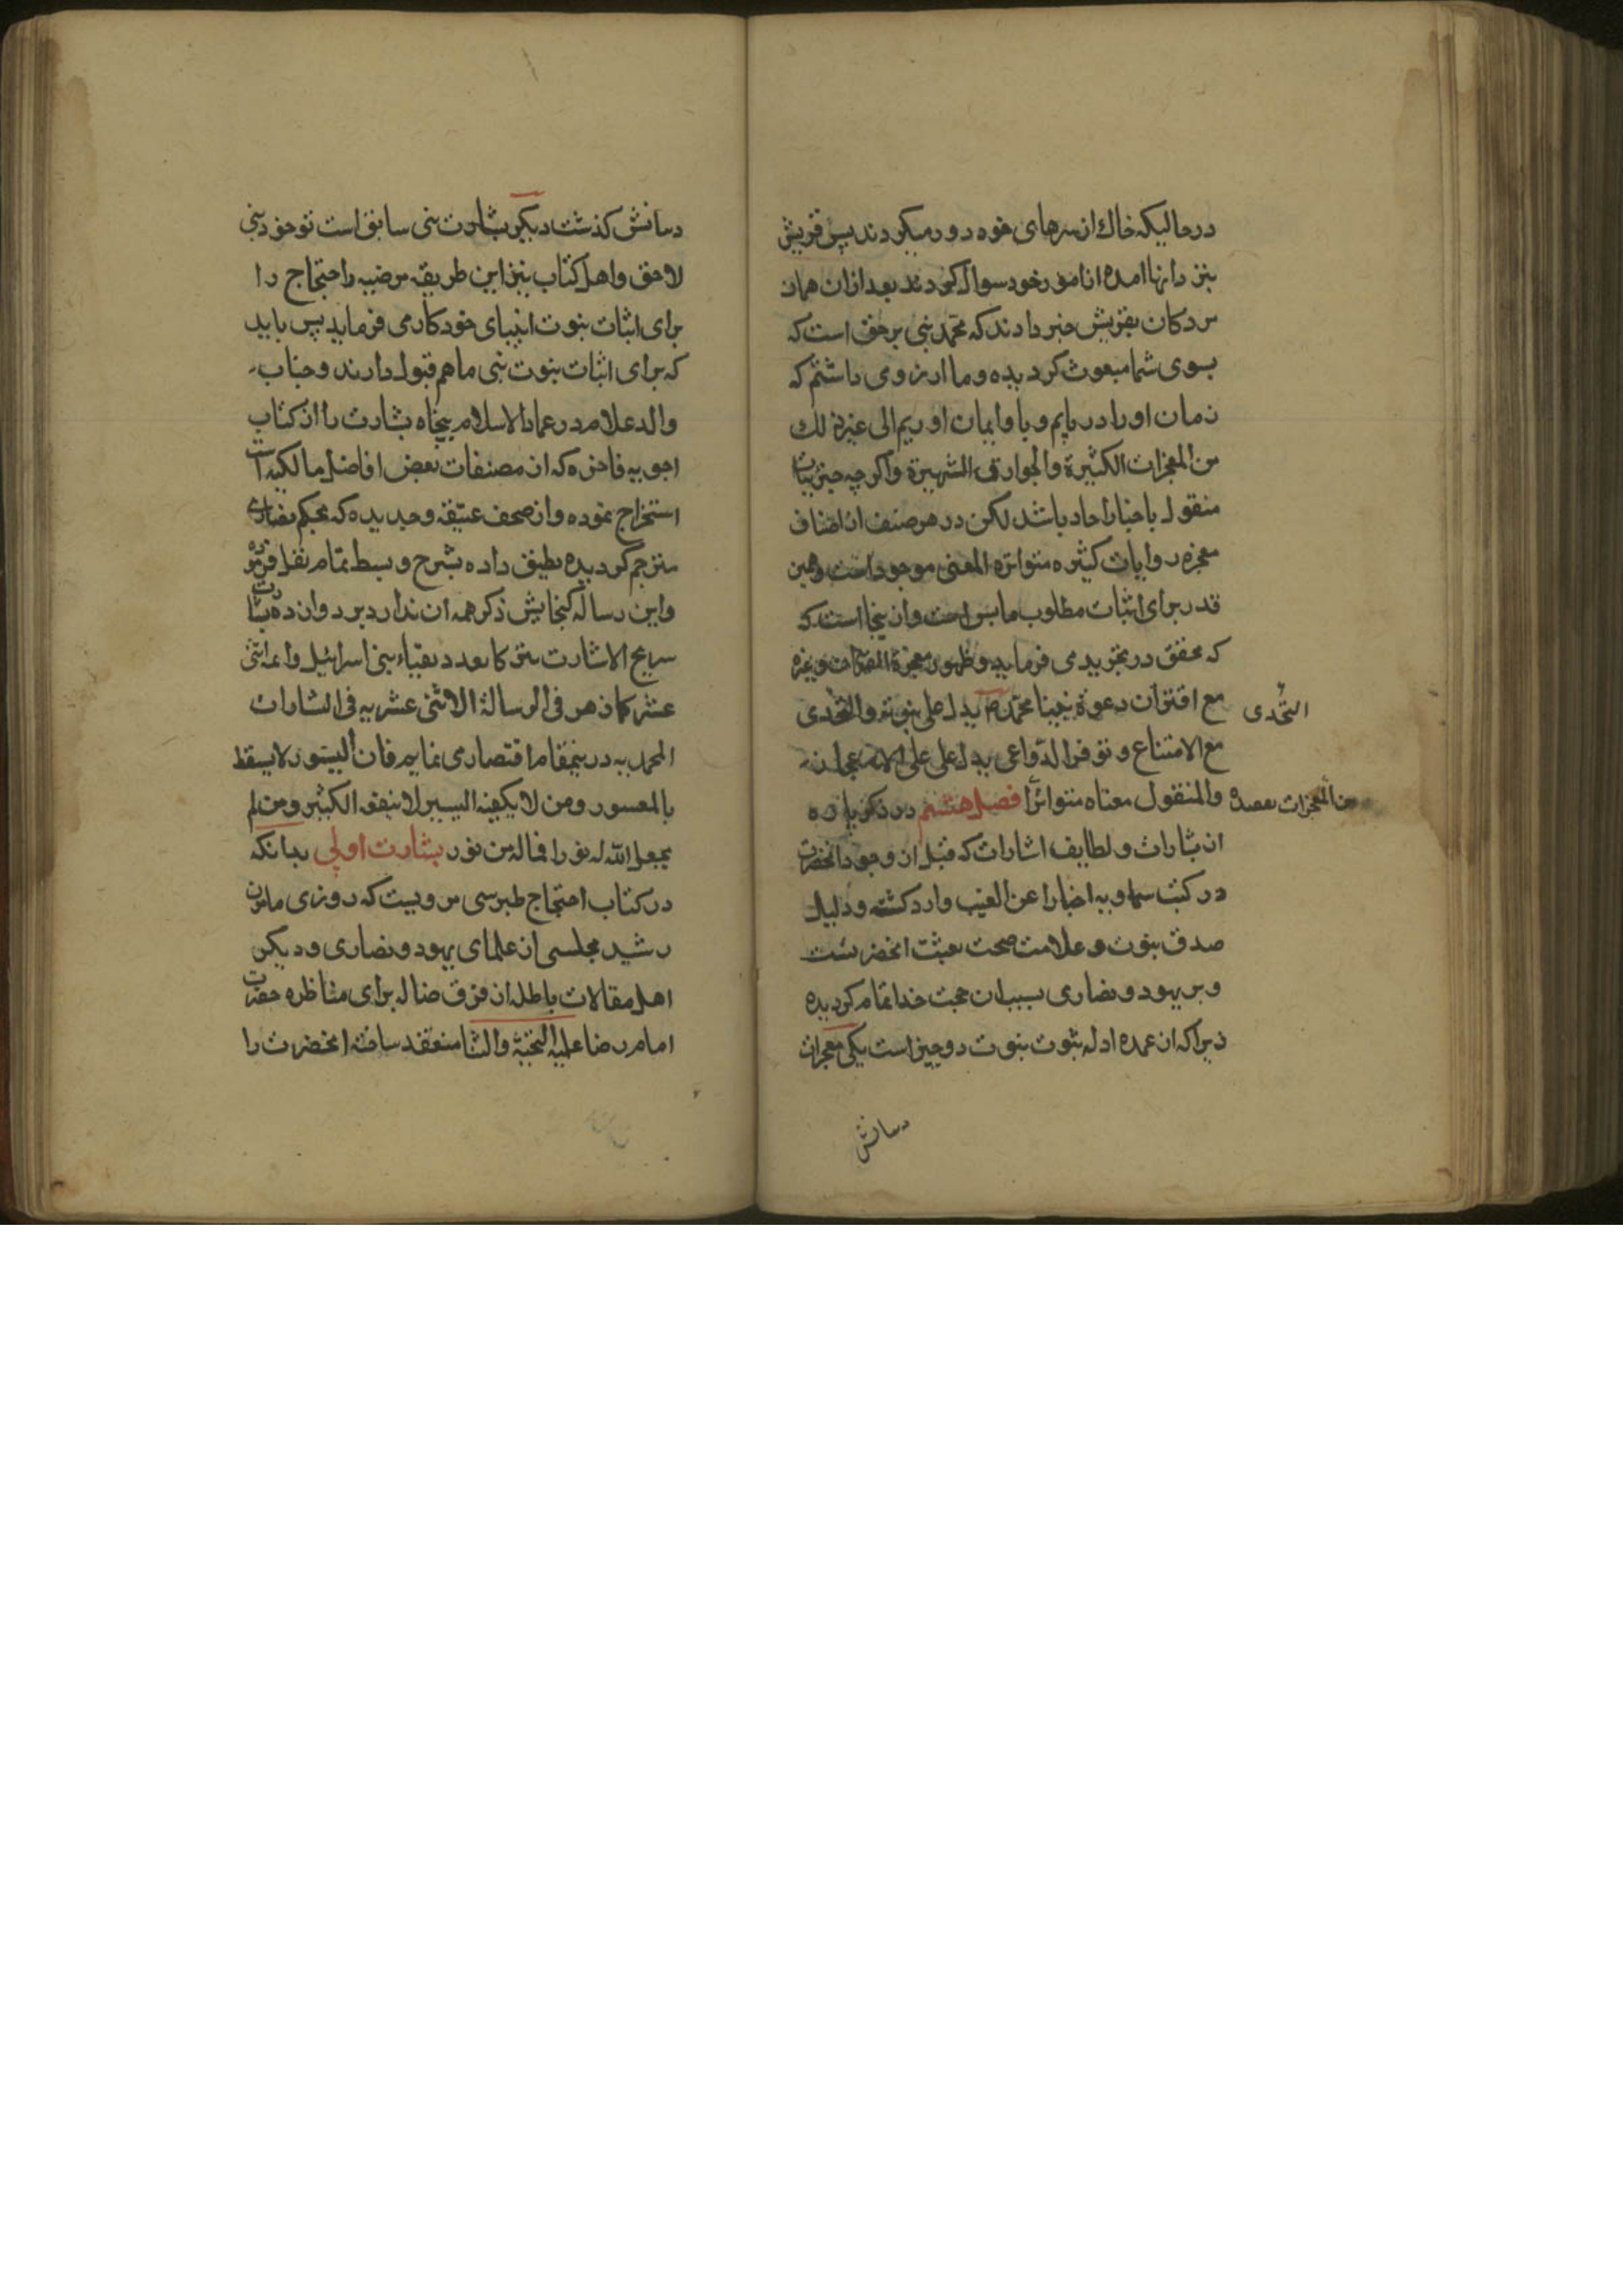 درحالیکه خاک از سرهای خود دور میکردند پس قریش
بنزد انها امده از امور خود سوال کردند بعد ازان همان
مردکان بقریش خبر دادند که محمد نبی برحق است که
بسوی شما مبعوث کردیده و ما ارزوی داشتیم که
زمان او را دریابیم و باو ایمان اوریم الی غیر ذلک
من المعجزات الکثیرة والخوارق الشهیرة واکرچه جزییات
منقول باخبار احاد باشد لکن در هر صنف از اصناف
معجزه روایات کثیره متواترة المعنی موجود است و همین
قدر برای اثبات مطلوب ما بس است و از ینجا است که
که محقق در تجرید می فرماید و ظهور معجزة القران وغیره
مع اقتران دعوة نبینا محمد ص یدل علی نبوته والتحدی
التحدی
مع الامتناع و توفر الدواعی یدل علی الاعجاز
والمنقول معناه متواترا فصل هشتم در ذکر پاره
من المعجزات یعضده
از بشارات و لطایف اشارات که قبل از وجود انحضرت
در کتب سماویه اخبارا عن الغیب وارد کشته و دلیل
صدق نبوت و علامت صحت بعثت انحضرتست
و بر یهود و نصاری بسبب ان حجت خدا تمام کردیده
زیرا که از عمده ادله ثبوت نبوت دو چیز است یکی معجزات
دسانش
دسانش کذشت دیکر بشارت نبی سابق است در حق نبی
لاحق و اهل کتاب نیز این طریقه مرضیه احتجاج را
برای اثبات نبوت انبیای خود کار می فرماید پس باید
که برای اثبات نبوت نبی ما هم قبول دارند و جناب
والد علام در عماد الاسلام پنجاه بشارت را از کتاب
اجوبه فاخره که از مصنفات بعض افاضل مالکیه است
استخراج نموده و از صحف عتیقه و جدیده که بحکم نصاری
مترجم کردیده تطبیق داده بشرح و بسط تمام نقل فرموده
و این رساله کنجایش ذکر همه ان ندارد بر دوازده بشارت
سریع الاشارت بعدد نقباء بنی اسرائیل و ائمه اثنی
عشر کما ذهر فی الرسالة الاثنی عشریه فی البشارات
المحمدیه درینمقام اقتصار می نمایم فان المیسور لا یسقط
بالمعسور و من لا یکفیه الیسیر لا ینفعه الکثیر و من لم
یجعل الله له نورا فما له من نور بشارت اولی بدانکه
در کتاب احتجاج طبرسی مرویست که روزی مامون
رشید مجلسی از علمای یهود و نصاری و دیکر
اهل مقالات باطله از فرق ضاله برای مناظره حضرت
امام رضا علیه التحیة والثنا منعقد ساخته انحضرت را